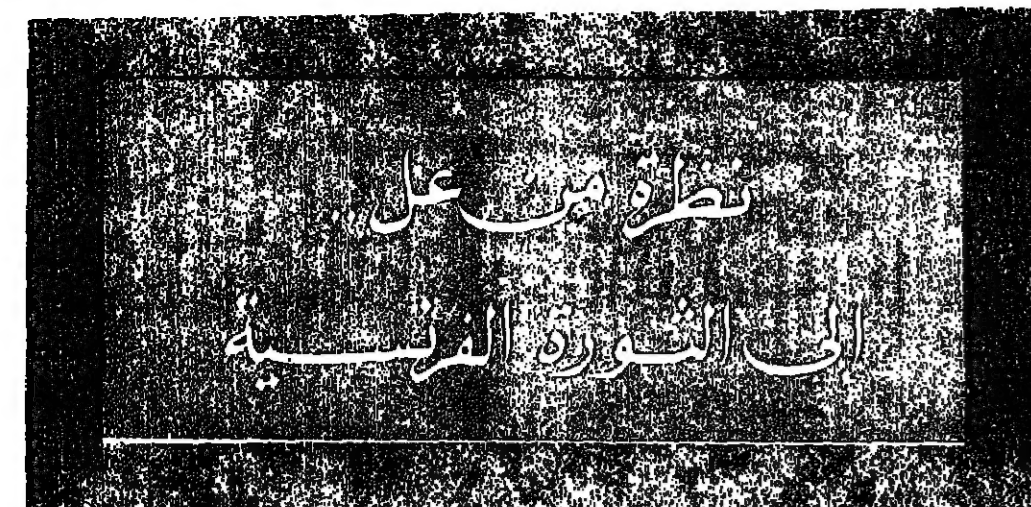 نظرة من عل..
إلى الثورة الفرنسية